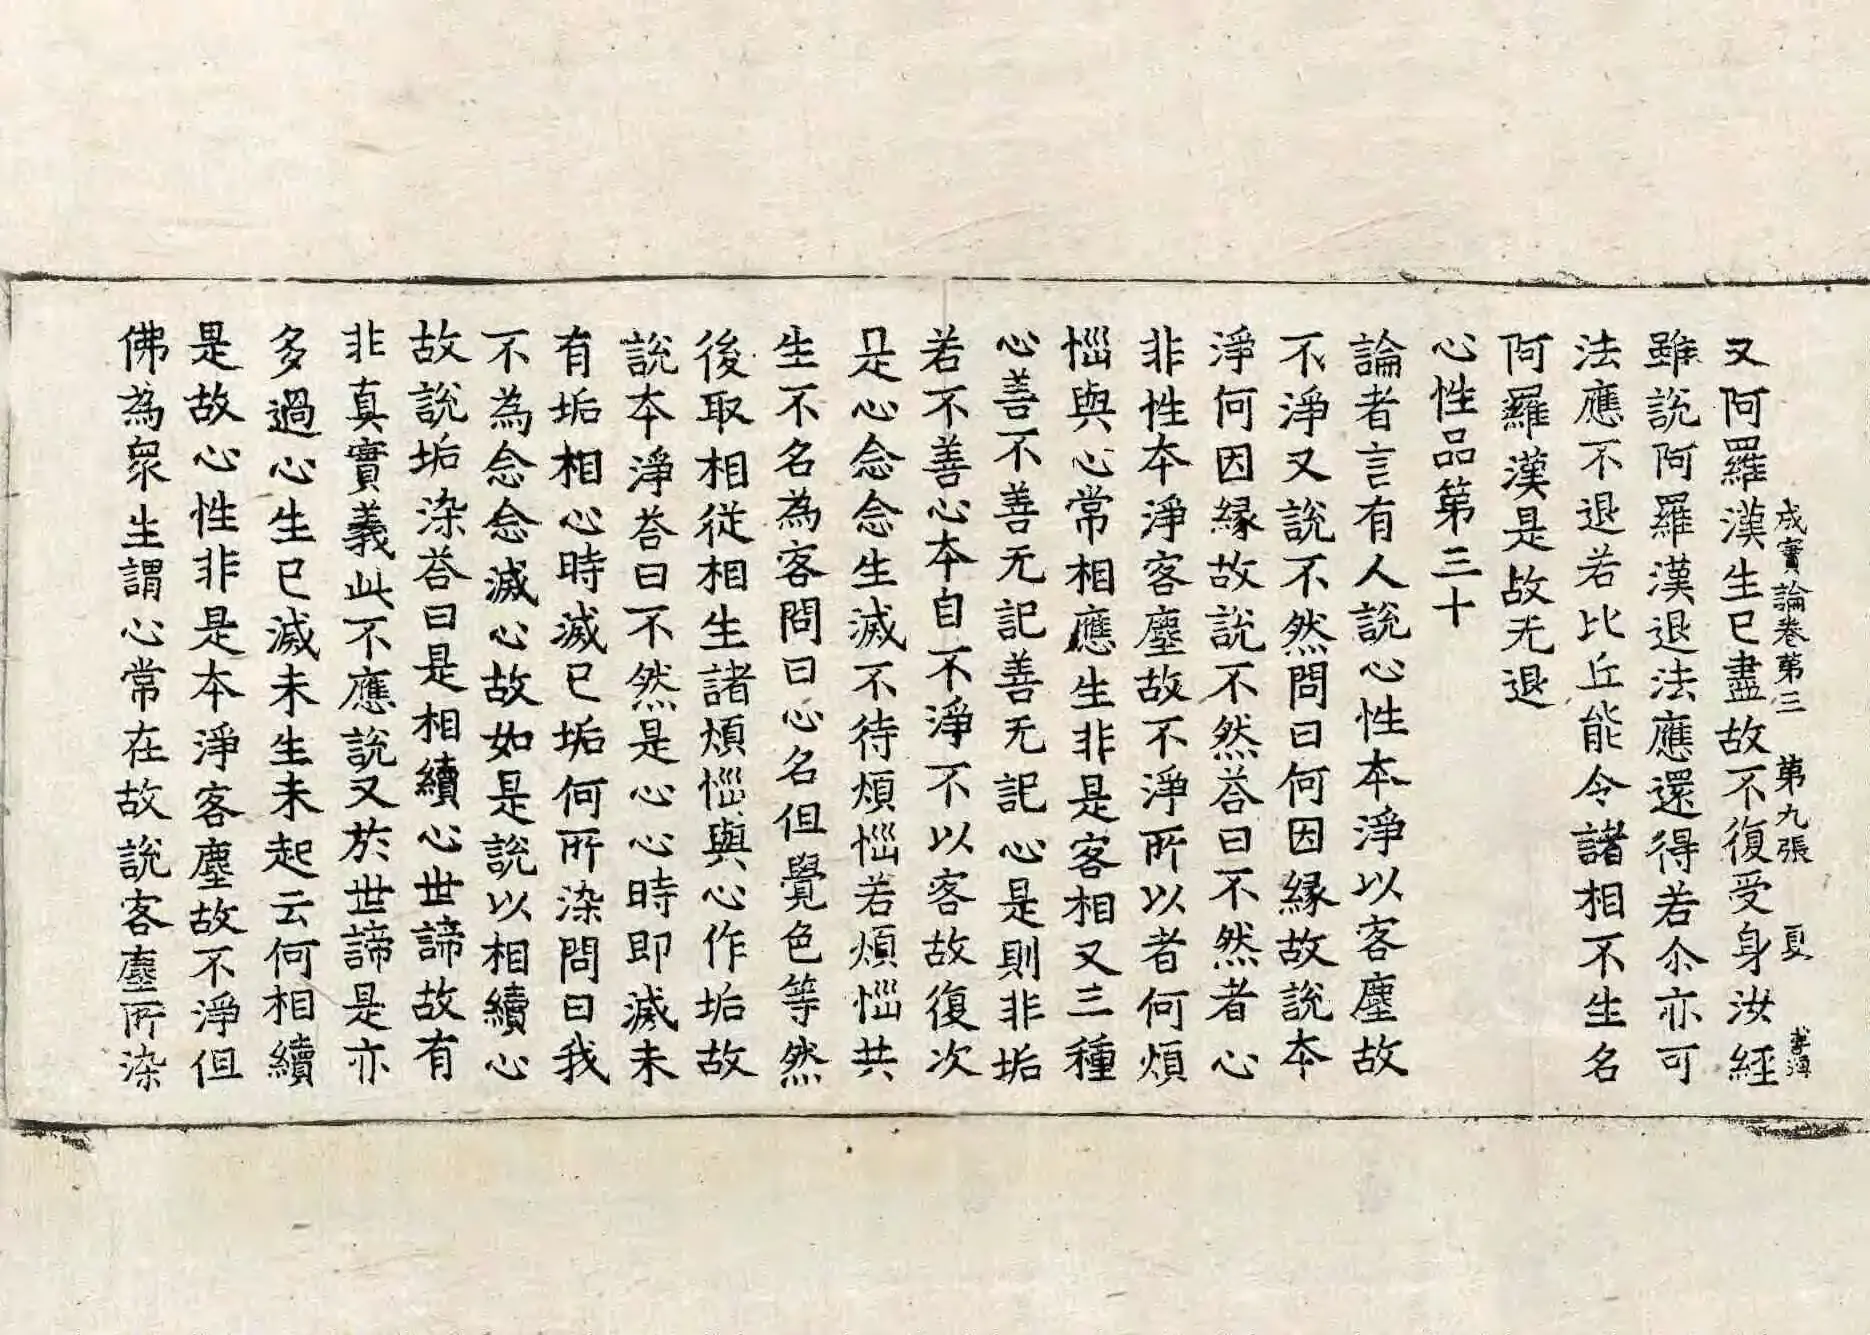 成實論卷第三　第九張　夏
又阿羅漢生已盡故不復受身汝經
雖說阿羅漢退法應還得若尒亦可
法應不退若比丘能令諸相不生名
阿羅漢是故无退
心性品第三十
論者言有人說心性本淨以客塵故
不淨又說不然問曰何因緣故說本
淨何因緣故說不然荅曰不然者心
非性本淨客塵故不淨所以者何煩
惱與心常相應生非是客相又三種
心善不善无記善无記心是則非垢
若不善心本自不淨不以客故復次
是心念念生滅不待煩惱若煩惱共
生不名為客問曰心名但覺色等然
後取相從相生諸煩惱與心作垢故
說本淨荅曰不然是心心時即滅未
有垢相心時滅已垢何所染問曰我
不為念念滅心故如是說以相續心
故說垢染荅曰是相續心世諦故有
非真實義此不應說又於世諦是亦
多過心生已滅未生未起云何相續
是故心性非是本淨客塵故不淨但
佛為衆生謂心常在故說客塵所染